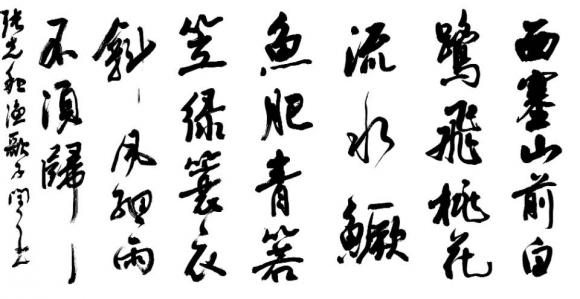 西塞山前白
鷺飛桃花
流水鱖
魚肥青箬
笠綠簑衣
斜風細雨
不須歸
張志和漁歌子